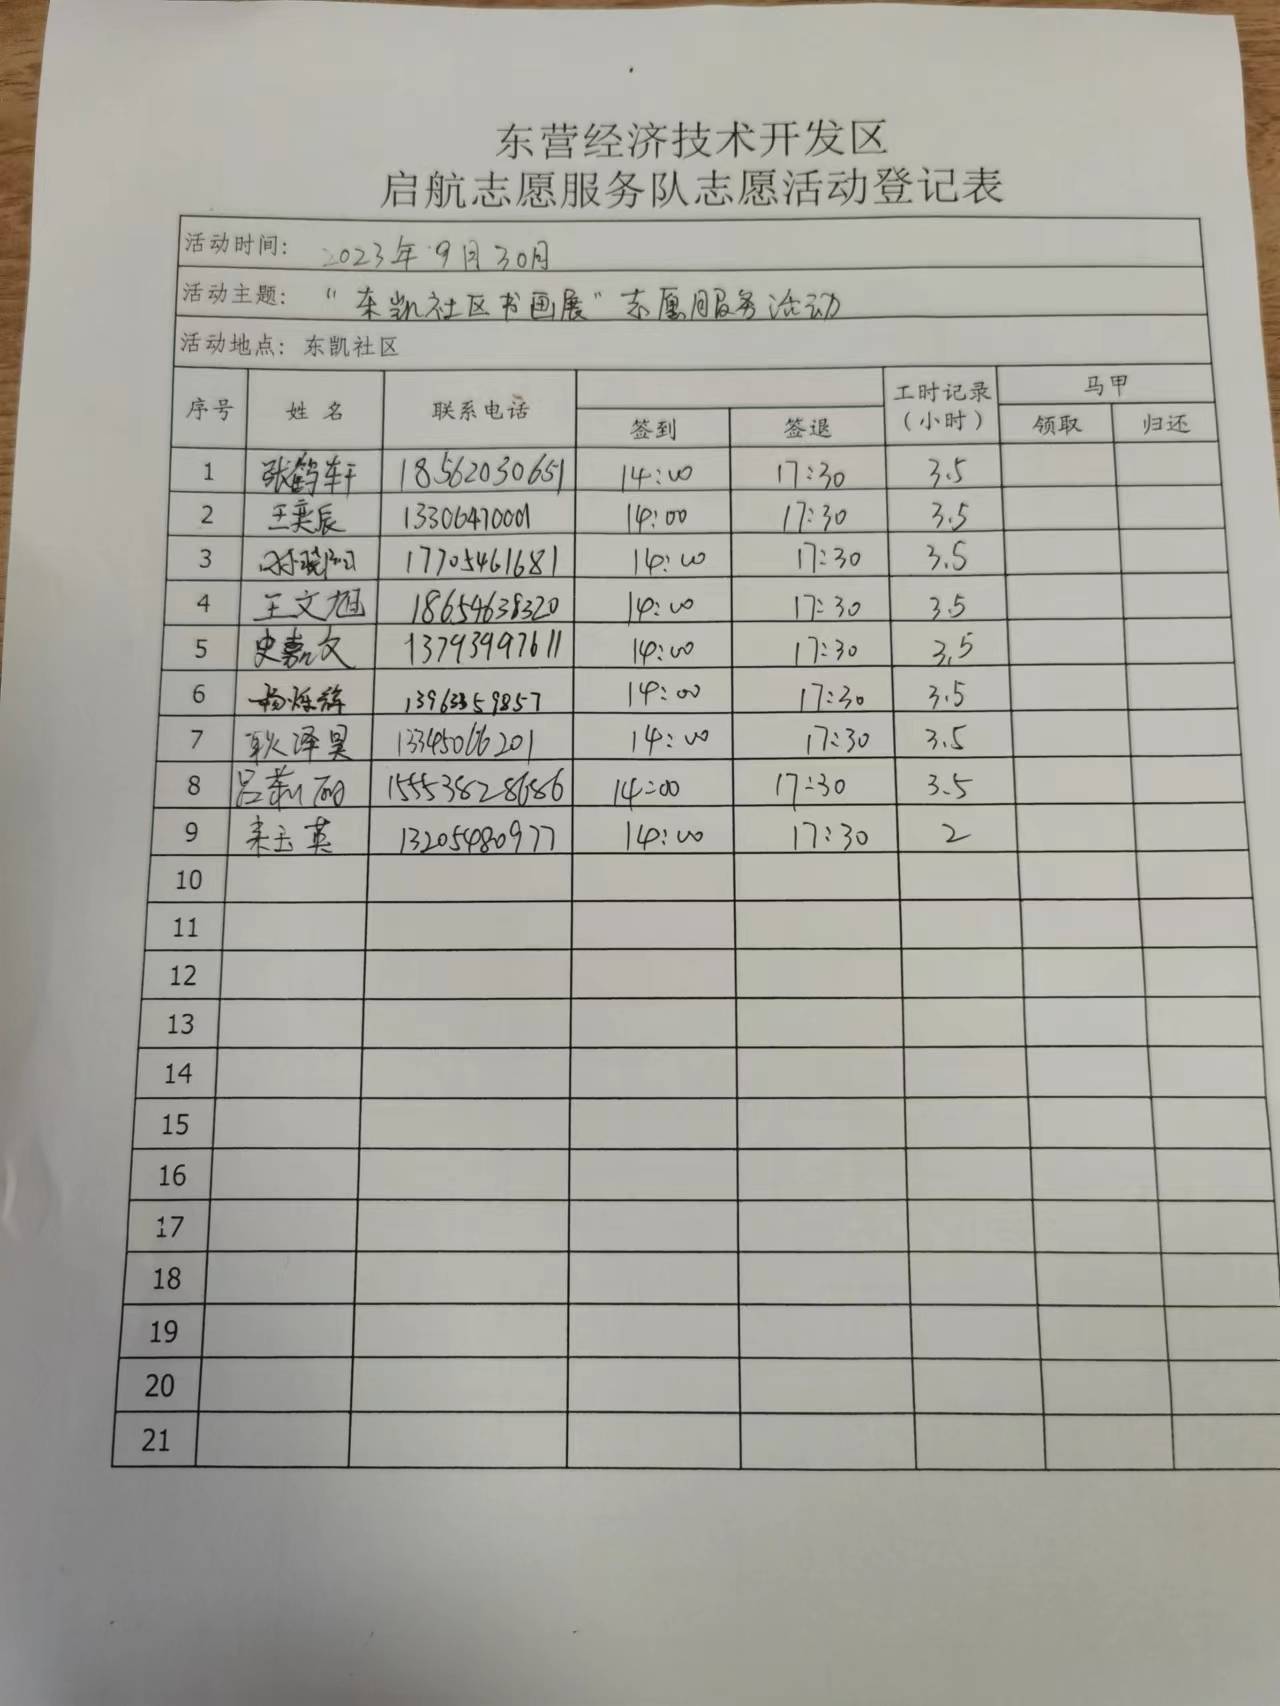 东营经济技术开发区
启航志愿服务队志愿活动登记表
活动时间: 2023年9月30日
活动主题: “东凯社区书画展”志愿服务活动
活动地点: 东凯社区
序号 姓名 联系电话 签到 签退 工时记录(小时) 马甲 领取 归还
1 张鹤轩 18562030651 14:00 17:30 3.5
2 王奕辰 13306470001 14:00 17:30 3.5
3 17705461681 14:00 17:30 3.5
4 王文旭 18654638320 14:00 17:30 3.5
5 史嘉文 13793997611 14:00 17:30 3.5
6 13963359857 14:00 17:30 3.5
7 耿泽昊 13345066201 14:00 17:30 3.5
8 吕莉丽 15553828686 14:00 17:30 3.5
9 宋玉英 13205480977 14:00 17:30 2
10
11
12
13
14
15
16
17
18
19
20
21